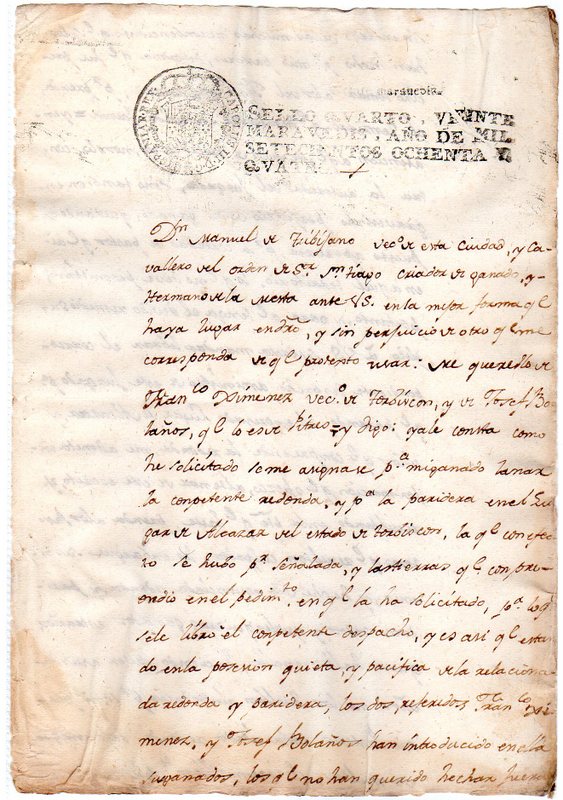 maravedis.
SELLO QVARTO, VEINTE
MARAVEDIS, AÑO DE MIL
SETECIENTOS OCHENTA Y
QVATRO
Dn. Manuel de Tribijano vecº de esta Ciudad, y Ca-
vallero del orden de Sor. Sn.tiago criador de ganado, y
Hermano de la Mesta ante VS. en la mejor forma q.l
haya lugar en dro, y sin perjuicio de otro q.l me
corresponda de q.l protesto usar: Me querello de
Fran.co Ximenez vec.o de Torbiscon, y de Josef Bo-
laños, q.l lo es de Pitres, y digo: yale consta como
he solicitado se me asignase p.a mi ganado lanar
la conpetente redonda, y p.a la paridera en el Lu-
gar de Alcazar del estado de Torbiscon, la q.l con efec-
to se hubo p.r señalada, y las tierras q.l conpre-
endio en el pedim.to en q.l la ha solicitado, p.a lo q.l
se le libro el conpetente despacho, y es asi q.l estan-
do en la posesion quieta, y pacifica de la relaciona-
da redonda y paridera, los dos referidos Fran.co Xi-
menez, y Josef Bolaños han introducido en ella
sus ganados, los q.l no han querido hechar fuera